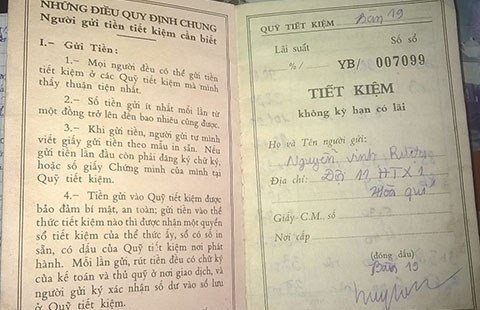 NHỮNG ĐIỀU QUY ĐỊNH CHUNG
Người gửi tiền tiết kiệm cần biết
I.- Gửi Tiền:
1.- Mọi người đều có thể gửi tiền
tiết kiệm ở các Quỹ tiết kiệm mà mình
thấy thuận tiện nhất.
2.- Số tiền gửi ít nhất mỗi lần từ
một đồng trở lên đến bao nhiêu cũng được.
3.- Khi gửi tiền, người gửi tự mình
viết giấy gửi tiền theo mẫu in sẵn. Nếu
gửi tiền lần đầu còn phải đăng ký chữ ký,
hoặc số giấy Chứng minh của mình tại
Quỹ tiết kiệm.
4.- Tiền gửi vào Quỹ tiết kiệm được
bảo đảm bí mật, an toàn; gửi tiền vào thể
thức tiết kiệm nào thì được nhận một quyển
sổ tiết kiệm của thể thức ấy, sổ có số in
sẵn, có dấu của Quỹ tiết kiệm nơi phát
hành. Mỗi lần gửi, rút tiền đều có chữ ký
của kế toán và thủ quỹ ở nơi giao dịch, và
người gửi ký xác nhận số dư vào sổ lưu
ở Quỹ tiết kiệm.
QUỸ TIẾT KIỆM Bàn 19
Lãi suất Số sổ
%/ YB/ 007099
TIẾT KIỆM
không kỳ hạn có lãi
Họ và Tên người gửi:
Nguyễn Vinh
Địa chỉ: Đội 11 HTX1
Hòa quí
Giấy C.M. số
Nơi cấp
(đóng dấu)
Bàn 19